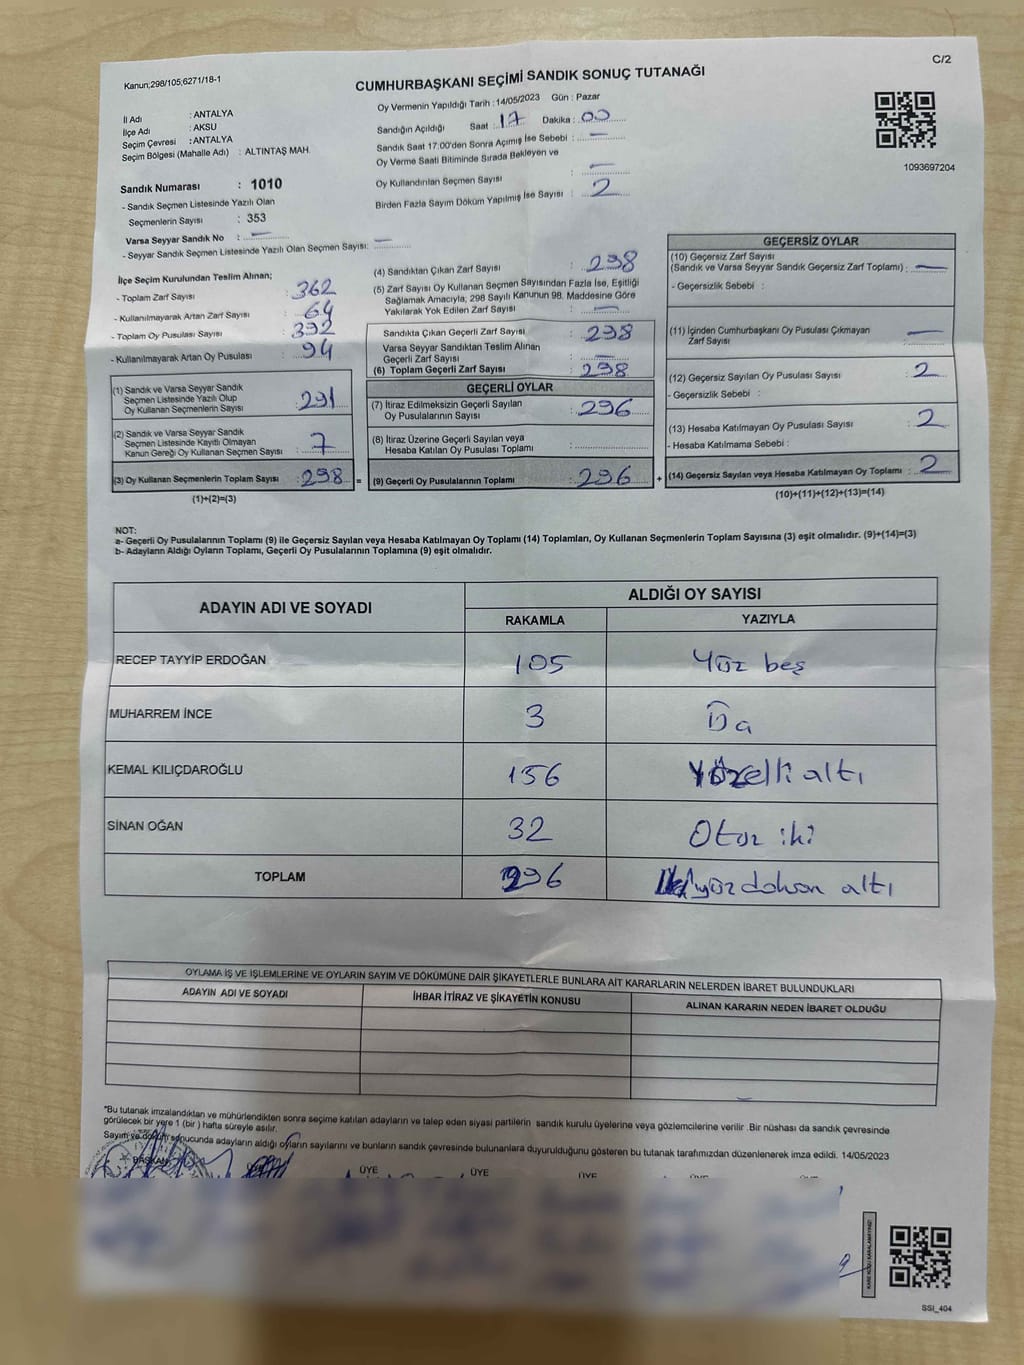 Kanun;298/105;6271/18-1
C/2
CUMHURBAŞKANI SEÇİMİ SANDIK SONUÇ TUTANAĞI
İl Adı : ANTALYA
İlçe Adı : AKSU
Seçim Çevresi : ANTALYA
Seçim Bölgesi (Mahalle Adı) : ALTINTAŞ MAH.
Sandık Numarası : 1010
- Sandık Seçmen Listesinde Yazılı Olan
Seçmenlerin Sayısı : 353
Varsa Seyyar Sandık No : —
- Seyyar Sandık Seçmen Listesinde Yazılı Olan Seçmen Sayısı: —
Oy Vermenin Yapıldığı Tarih : 14/05/2023 Gün : Pazar
Sandığın Açıldığı Saat : 17 Dakika : 00
Sandık Saat 17:00'den Sonra Açımış İse Sebebi : —
Oy Verme Saati Bitiminde Sırada Bekleyen ve
Oy Kullandırılan Seçmen Sayısı : —
Birden Fazla Sayım Döküm Yapılmış İse Sayısı : 2
1093697204
İlçe Seçim Kurulundan Teslim Alınan;
- Toplam Zarf Sayısı : 362
- Kullanılmayarak Artan Zarf Sayısı : 64
- Toplam Oy Pusulası Sayısı : 392
- Kullanılmayarak Artan Oy Pusulası : 94
(1) Sandık ve Varsa Seyyar Sandık
Seçmen Listesinde Yazılı Olup
Oy Kullanan Seçmenlerin Sayısı : 291
(2) Sandık ve Varsa Seyyar Sandık
Seçmen Listesinde Kayıtlı Olmayan
Kanun Gereği Oy Kullanan Seçmen Sayısı : 7
(3) Oy Kullanan Seçmenlerin Toplam Sayısı : 298 =
(1)+(2)=(3)
(4) Sandıktan Çıkan Zarf Sayısı : 298
(5) Zarf Sayısı Oy Kullanan Seçmen Sayısından Fazla İse, Eşitliği
Sağlamak Amacıyla, 298 Sayılı Kanunun 98. Maddesine Göre
Yakılarak Yok Edilen Zarf Sayısı : —
Sandıkta Çıkan Geçerli Zarf Sayısı : 298
Varsa Seyyar Sandıktan Teslim Alınan
Geçerli Zarf Sayısı : —
(6) Toplam Geçerli Zarf Sayısı : 298
GEÇERLİ OYLAR
(7) İtiraz Edilmeksizin Geçerli Sayılan
Oy Pusulalarının Sayısı : 296
(8) İtiraz Üzerine Geçerli Sayılan veya
Hesaba Katılan Oy Pusulası Toplamı :
(9) Geçerli Oy Pusulalarının Toplamı : 296 +
GEÇERSİZ OYLAR
(10) Geçersiz Zarf Sayısı
(Sandık ve Varsa Seyyar Sandık Geçersiz Zarf Toplamı) : —
- Geçersizlik Sebebi :
(11) İçinden Cumhurbaşkanı Oy Pusulası Çıkmayan
Zarf Sayısı : —
(12) Geçersiz Sayılan Oy Pusulası Sayısı : 2
- Geçersizlik Sebebi :
(13) Hesaba Katılmayan Oy Pusulası Sayısı : 2
- Hesaba Katılmama Sebebi :
(14) Geçersiz Sayılan veya Hesaba Katılmayan Oy Toplamı : 2
(10)+(11)+(12)+(13)=(14)
NOT:
a- Geçerli Oy Pusulalarının Toplamı (9) ile Geçersiz Sayılan veya Hesaba Katılmayan Oy Toplamı (14) Toplamları, Oy Kullanan Seçmenlerin Toplam Sayısına (3) eşit olmalıdır. (9)+(14)=(3)
b- Adayların Aldığı Oyların Toplamı, Geçerli Oy Pusulalarının Toplamına (9) eşit olmalıdır.
ADAYIN ADI VE SOYADI ALDIĞI OY SAYISI
RAKAMLA YAZIYLA
RECEP TAYYİP ERDOĞAN 105 Yüz beş
MUHARREM İNCE 3
KEMAL KILIÇDAROĞLU 156 Yüzelli altı
SİNAN OĞAN 32 Otuz iki
TOPLAM 296 İkiyüzdoksan altı
OYLAMA İŞ VE İŞLEMLERİNE VE OYLARIN SAYIM VE DÖKÜMÜNE DAİR ŞİKAYETLERLE BUNLARA AİT KARARLARIN NELERDEN İBARET BULUNDUKLARI
ADAYIN ADI VE SOYADI İHBAR İTİRAZ VE ŞİKAYETİN KONUSU ALINAN KARARIN NEDEN İBARET OLDUĞU
*Bu tutanak imzalandıktan ve mühürlendikten sonra seçime katılan adayların ve talep eden siyasi partilerin sandık kurulu üyelerine veya gözlemcilerine verilir .Bir nüshası da sandık çevresinde
görülecek bir yere 1 (bir ) hafta süreyle asılır.
Sayım ve döküm sonucunda adayların aldığı oyların sayılarını ve bunların sandık çevresinde bulunanlara duyurulduğunu gösteren bu tutanak tarafımızdan düzenlenerek imza edildi. 14/05/2023
BAŞKAN ÜYE ÜYE ÜYE ÜYE
KARE KODU KARALAMAYINIZ!
SSI_404